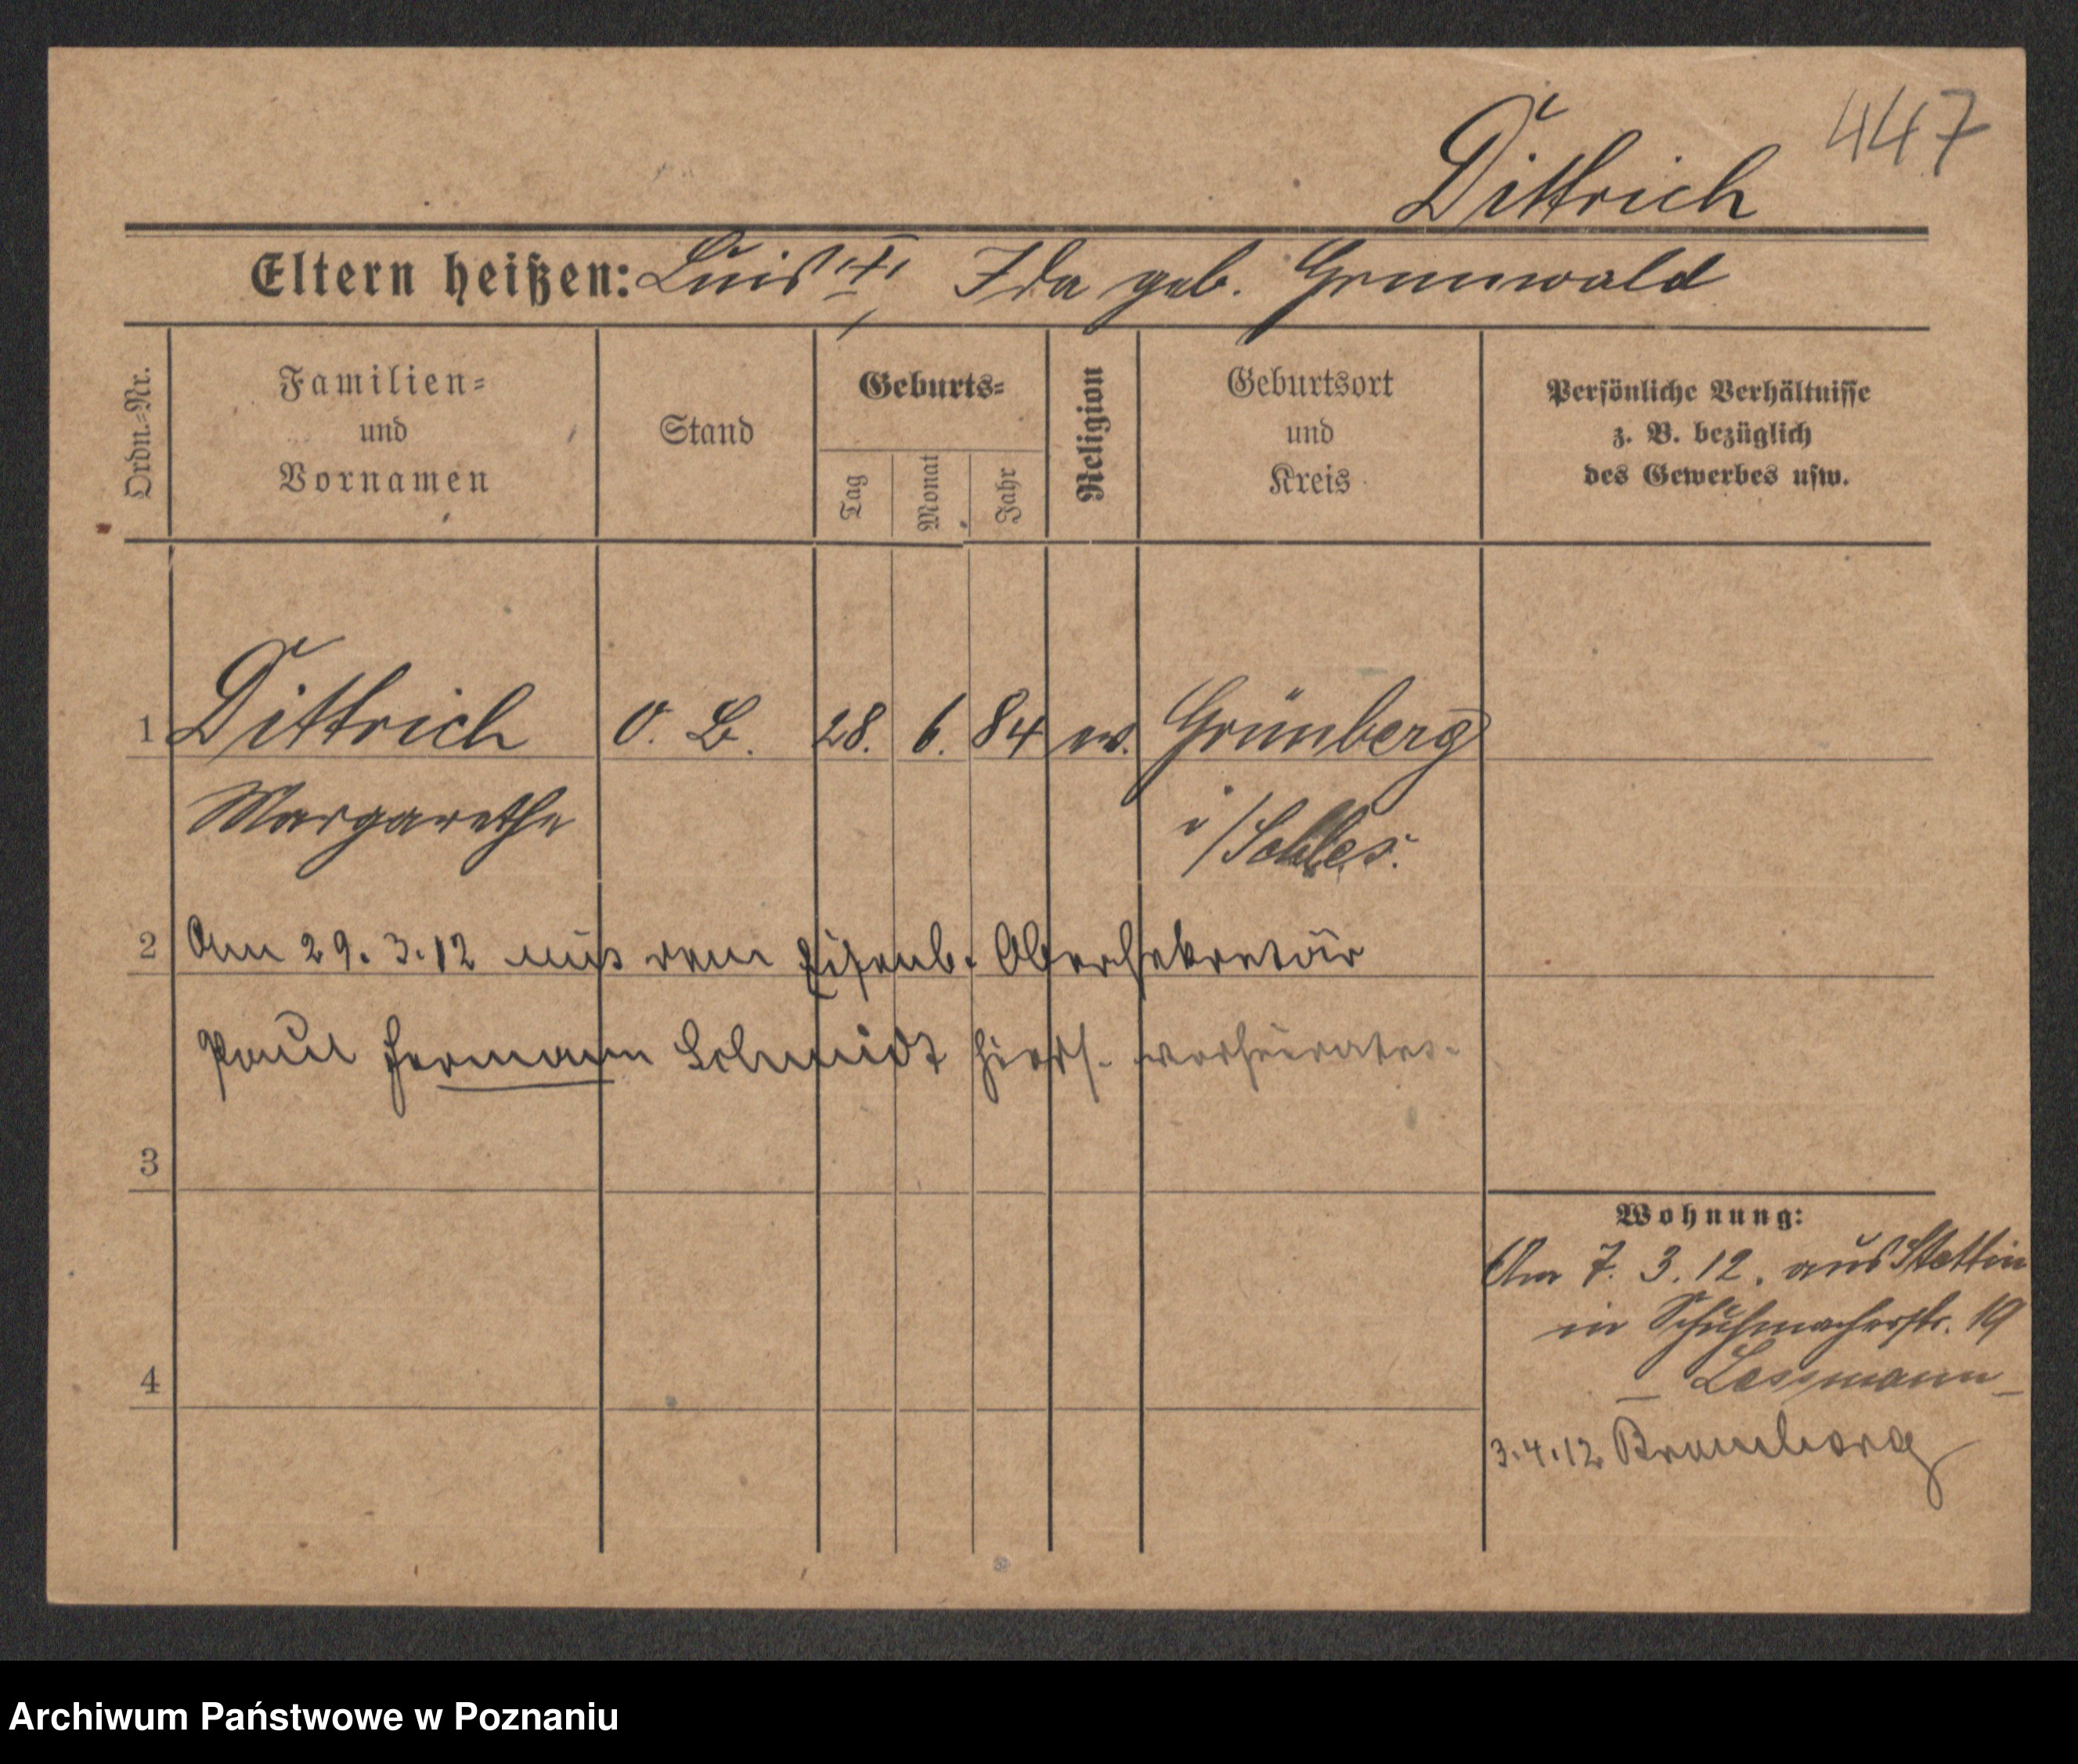 447
Dittrich
Eltern heißen: Luis †, Ida geb. Grunwald
Ordn.-Nr.
Familien-
und
Vornamen
Stand
Geburts-
Tag
Monat
Jahr
Religion
Geburtsort
und
Kreis
Persönliche Verhältnisse
z. B. bezüglich
des Gewerbes usw.
1 Dittrich O. B. 28. 6. 84 ev. Grünberg
Margarethe i/Schles.
2 Am 29.3.12 mit dem Eisenb. Obersekretär
Paul Hermann Schmidt hiers. verheiratet.
3
Wohnung:
Am 7. 3. 12. aus Stettin
in Schuhmacherstr. 19
4
3.4.12 Bromberg
Archiwum Państwowe w Poznaniu